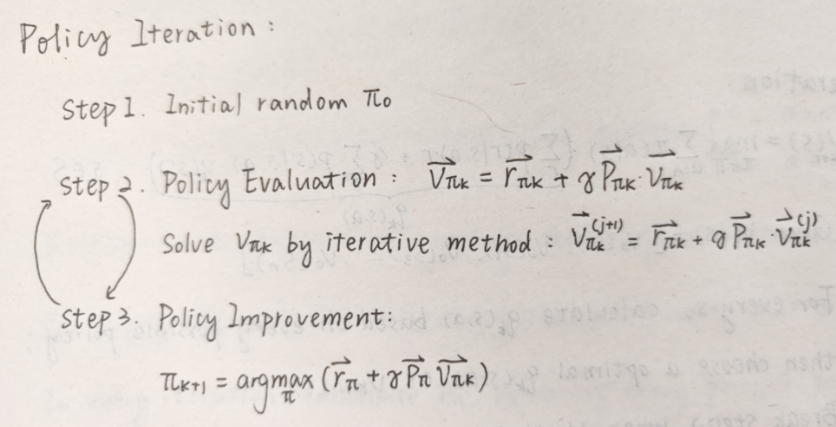 Policy Iteration :
Step 1. Initial random π₀
Step 2. Policy Evaluation : V⃗πₖ = r⃗πₖ + γ P⃗πₖ · V⃗πₖ
Solve Vπₖ by iterative method : V⃗πₖ⁽ʲ⁺¹⁾ = r⃗πₖ + γ P⃗πₖ · V⃗πₖ⁽ʲ⁾
Step 3. Policy Improvement:
πₖ₊₁ = argmax_π (r⃗π + γ P⃗π V⃗πₖ)